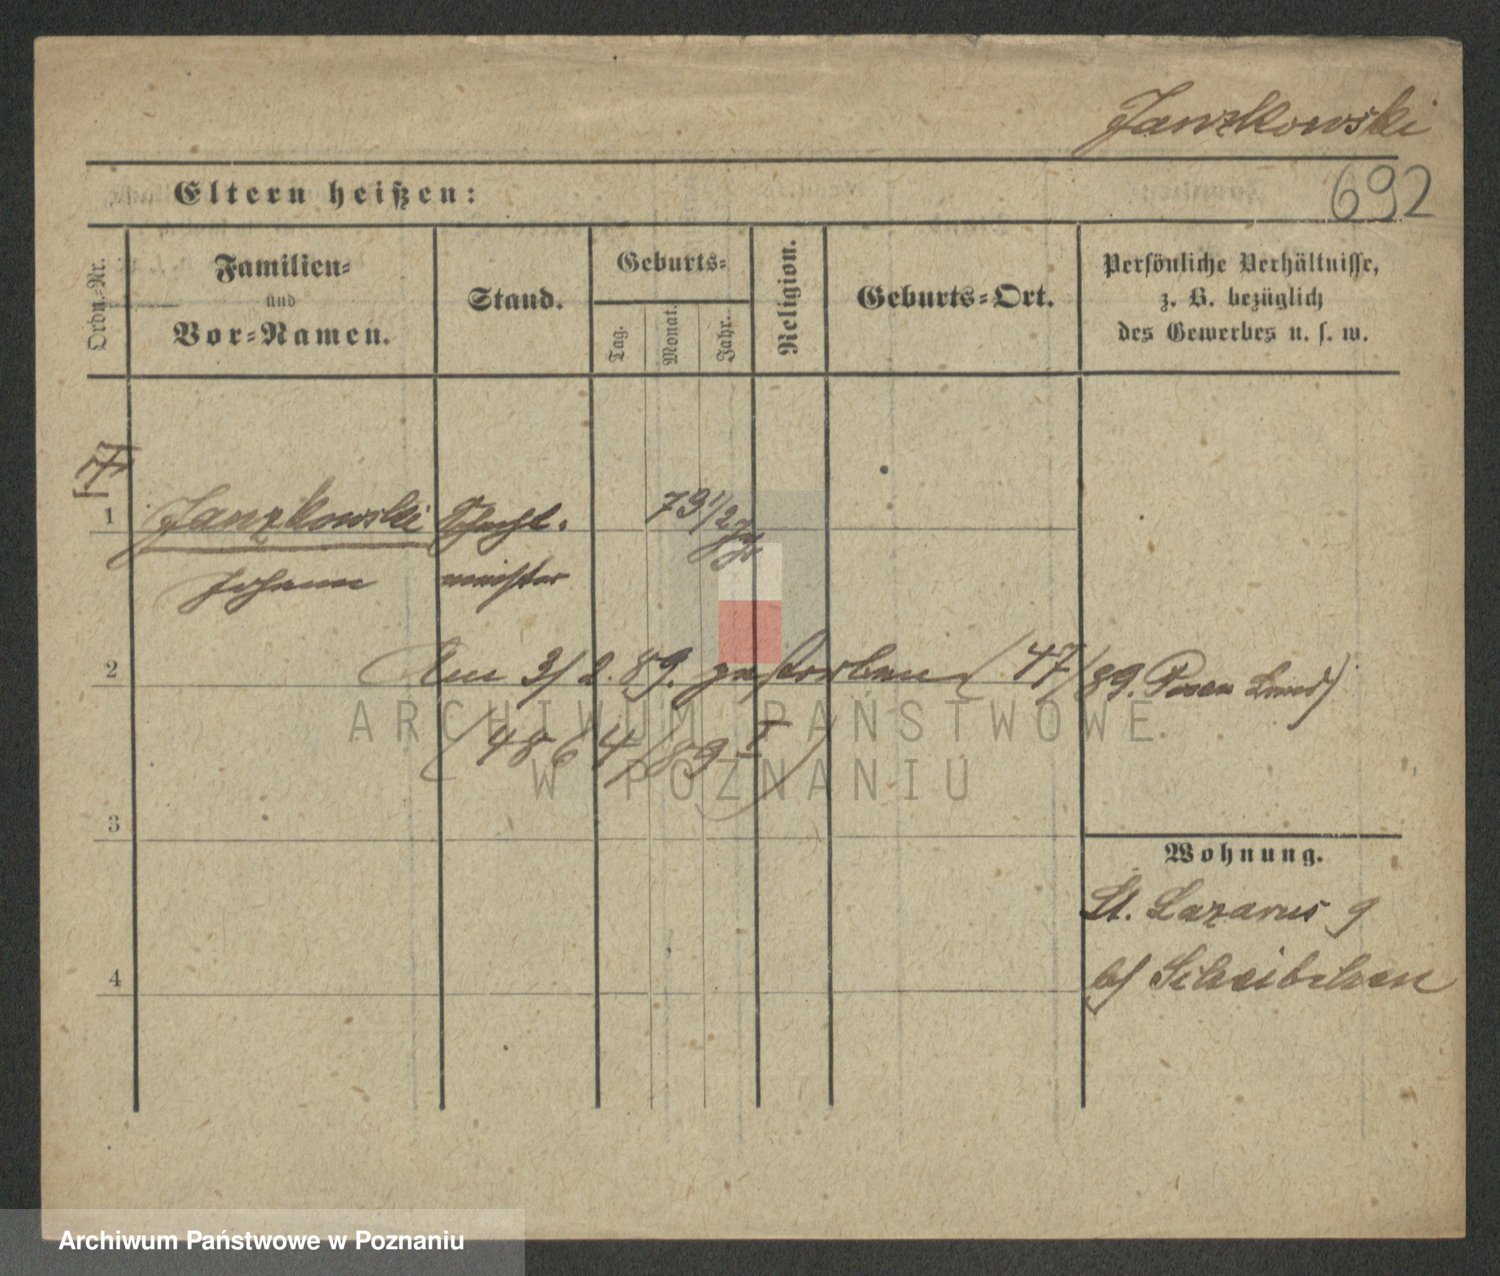 Janzkowski
692
Eltern heißen:
Ordn.-Nr.
Familien-
und
Vor-Namen.
Stand.
Geburts-
Tag.
Monat.
Jahr.
Religion.
Geburts-Ort.
Persönliche Verhältnisse,
z. B. bezüglich
des Gewerbes u. s. w.
1
Janzkowski
Johann
Schacht-
meister
73 1/2 Jahr
2
Am 3/2. 89. gestorben (47/89. Posen Land)
(4864/89 I)
3
4
Wohnung.
St. Lazarus 9
b/ Scheibchen
ARCHIWUM PAŃSTWOWE
W POZNANIU
Archiwum Państwowe w Poznaniu